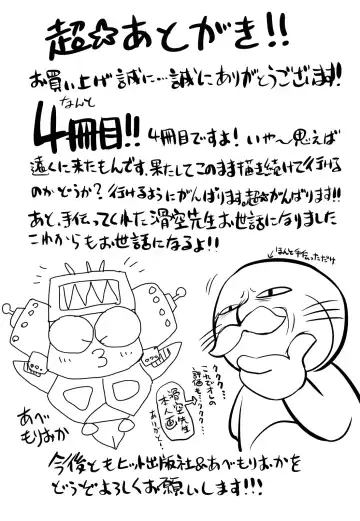 超☆あとがき!!
お買い上げ誠に…誠にありがとうございます!
なんと
4冊目!!4冊目ですよ!いや〜思えば
遠くに来たもんです。果たしてこのまま描き続けて行ける
のかどうか?行けるようにがんばります。超☆がんばります!!
あと、手伝ってくれた滑空先生お世話になりました
これからもお世話になるよ!!
ほんと手伝っただけ
ククク…
これでオレの
評価も…
ククク…
滑空先生
本人画
ありがと〜
あべ
もりおか
今後ともヒット出版社&あべもりおかを
どうぞよろしくお願いします!!!